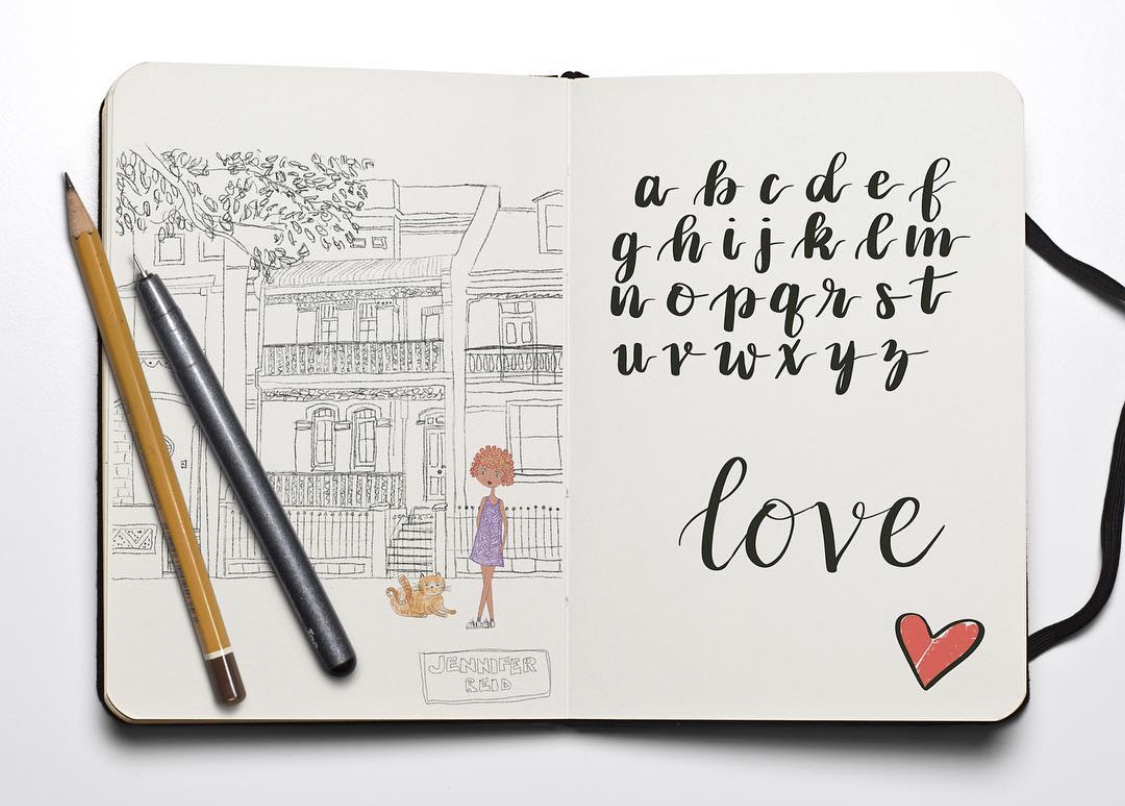 JENNIFER
REID
a b c d e f
g h i j k l m
n o p q r s t
u v w x y z
love